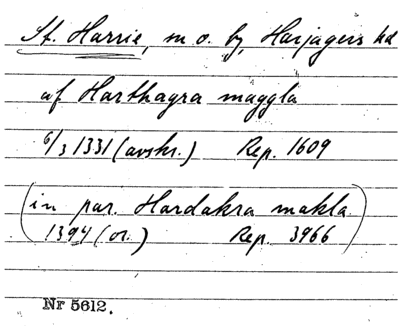 St. Harrie, sn o. by, Harjagers hd
af Harthagra møggla
6/3 1331 (avskr.) Rep. 1609
(in par. Hardakra møkla
1394 (or.) Rep. 3966)
Nr 5612.